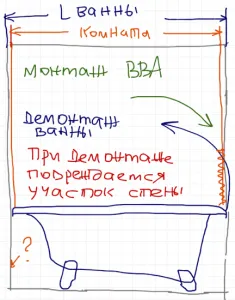 L ванны
комната
монтаж ВВА
Демонтаж
ванны
При демонтаже
повреждается
участок стены
?